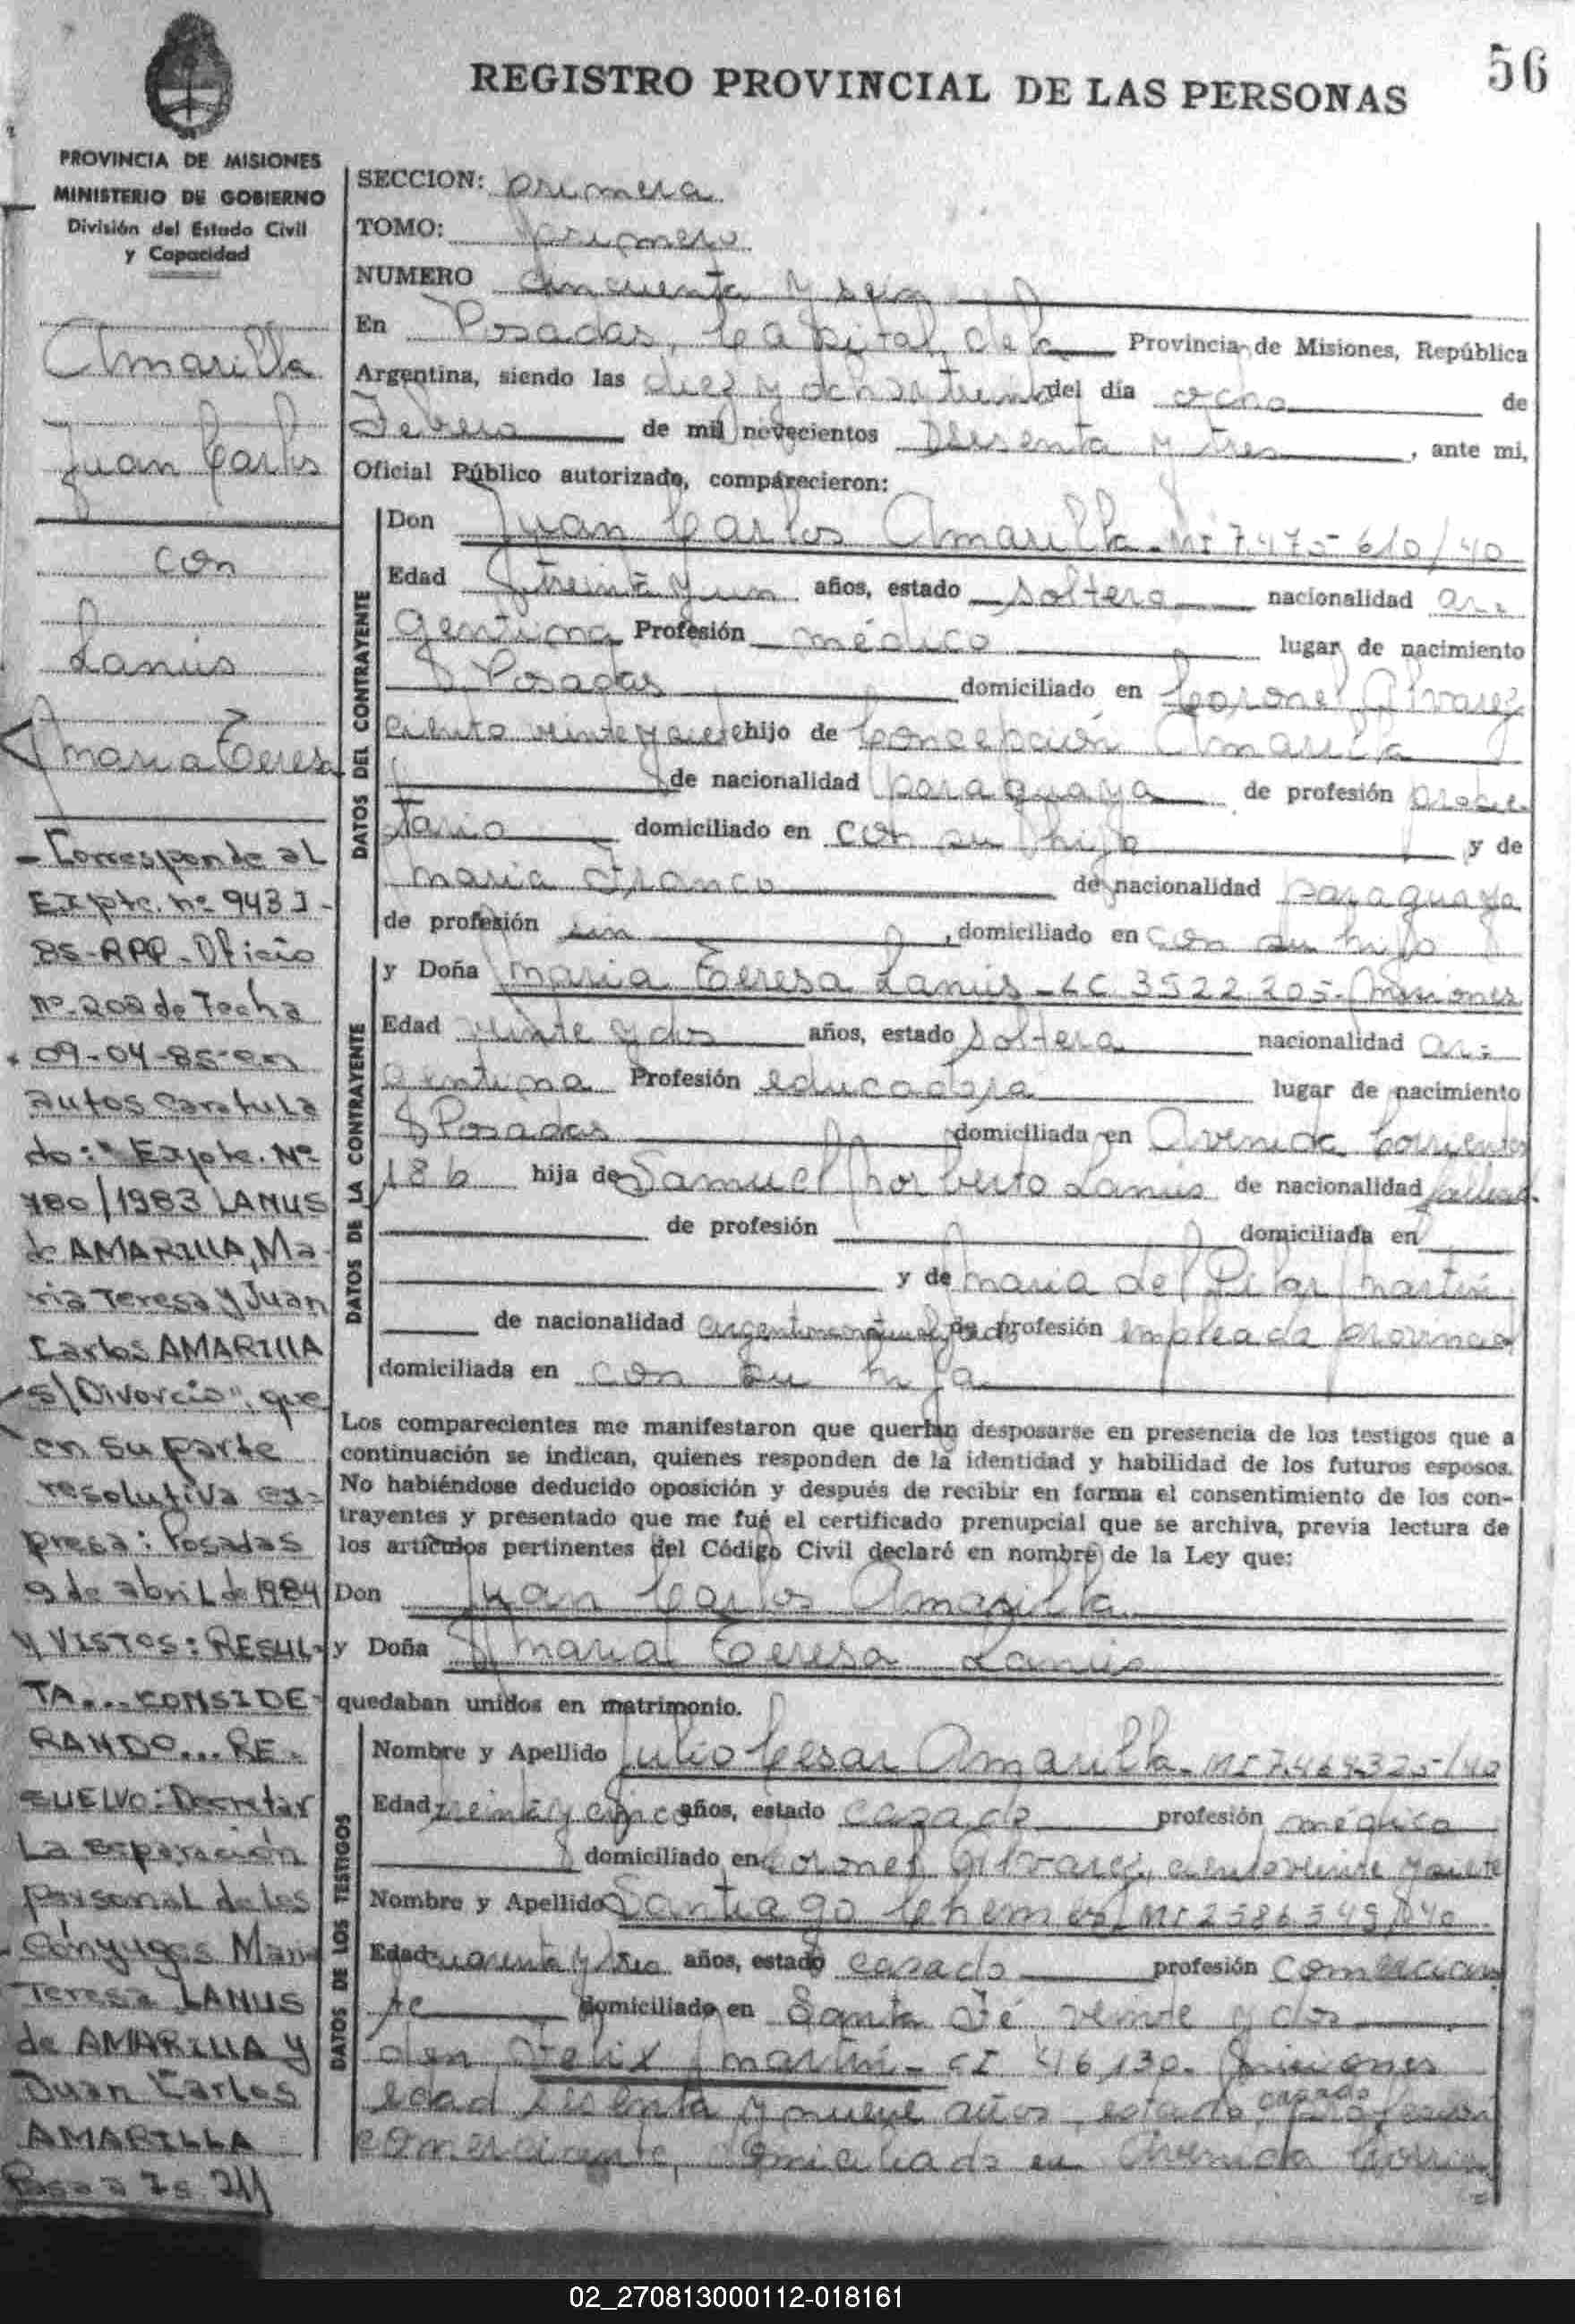 56
REGISTRO PROVINCIAL DE LAS PERSONAS
PROVINCIA DE MISIONES
MINISTERIO DE GOBIERNO
División del Estado Civil
y Capacidad
Amarilla
Juan Carlos
con
Lanús
Maria Teresa
- Corresponde al
Expte. nº 943 J -
85-RPP - Oficio
nº 202 de Fecha
09-04-85 en
autos caratula
do: "Expte. Nº
780/1983 LANUS
de AMARILLA, Ma-
ria Teresa y Juan
Carlos AMARILLA
s/Divorcio", que
en su parte
resolutiva ex-
presa: Posadas
9 de abril de 1984
Y VISTOS: RESUL-
TA... CONSIDE-
RANDO... RE-
SUELVO: Decretar
La separación
personal de los
Cónyuges Maria
Teresa LANUS
de AMARILLA y
Juan Carlos
AMARILLA
Pasa a Fs. 211
SECCION: primera
TOMO: primero
NUMERO cincuenta y seis
En Posadas, Capital de la Provincia de Misiones, República
Argentina, siendo las diez y ocho y treinta del día ocho de
Febrero de mil novecientos sesenta y tres, ante mi,
Oficial Público autorizado, comparecieron:
DATOS DEL CONTRAYENTE
Don Juan Carlos Amarilla - MI 7.475-610/40
Edad treinta y un años, estado soltero nacionalidad ar-
gentina Profesión médico lugar de nacimiento
Posadas domiciliado en Coronel Alvarez
ciento veinte y siete hijo de Concepción Amarilla
de nacionalidad paraguaya de profesión propie-
tario domiciliado en con su hijo y de
Maria Franco de nacionalidad paraguaya
de profesión sin, domiciliado en con su hijo
DATOS DE LA CONTRAYENTE
y Doña Maria Teresa Lanús - LC 3522.205 - Misiones
Edad veinte y dos años, estado soltera nacionalidad ar-
gentina Profesión educadora lugar de nacimiento
Posadas domiciliada en Avenida Corrientes
186 hija de Samuel Norberto Lanús de nacionalidad
de profesión domiciliada en
y de Maria del Pilar Martin
de nacionalidad argentina de profesión empleada provincial
domiciliada en con su hija
Los comparecientes me manifestaron que querían desposarse en presencia de los testigos que a
continuación se indican, quienes responden de la identidad y habilidad de los futuros esposos.
No habiéndose deducido oposición y después de recibir en forma el consentimiento de los con-
trayentes y presentado que me fué el certificado prenupcial que se archiva, previa lectura de
los artículos pertinentes del Código Civil declaré en nombre de la Ley que:
Don Juan Carlos Amarilla
y Doña Maria Teresa Lanús
quedaban unidos en matrimonio.
DATOS DE LOS TESTIGOS
Nombre y Apellido Julio Cesar Amarilla - MI 7.464.325-/40
Edad treinta y cinco años, estado casado profesión médico
domiciliado en Coronel Alvarez, ciento veinte y siete
Nombre y Apellido Santiago MI 2586349/40
Edad cuarenta y tres años, estado casado profesión comercian
te domiciliado en Santa Fé veinte y dos
don Felix Martin - CI 46,130 - Misiones
edad sesenta y nueve años, estado casado profesion
comerciante, domiciliado en Avenida Corrien
02_270813000112-018161